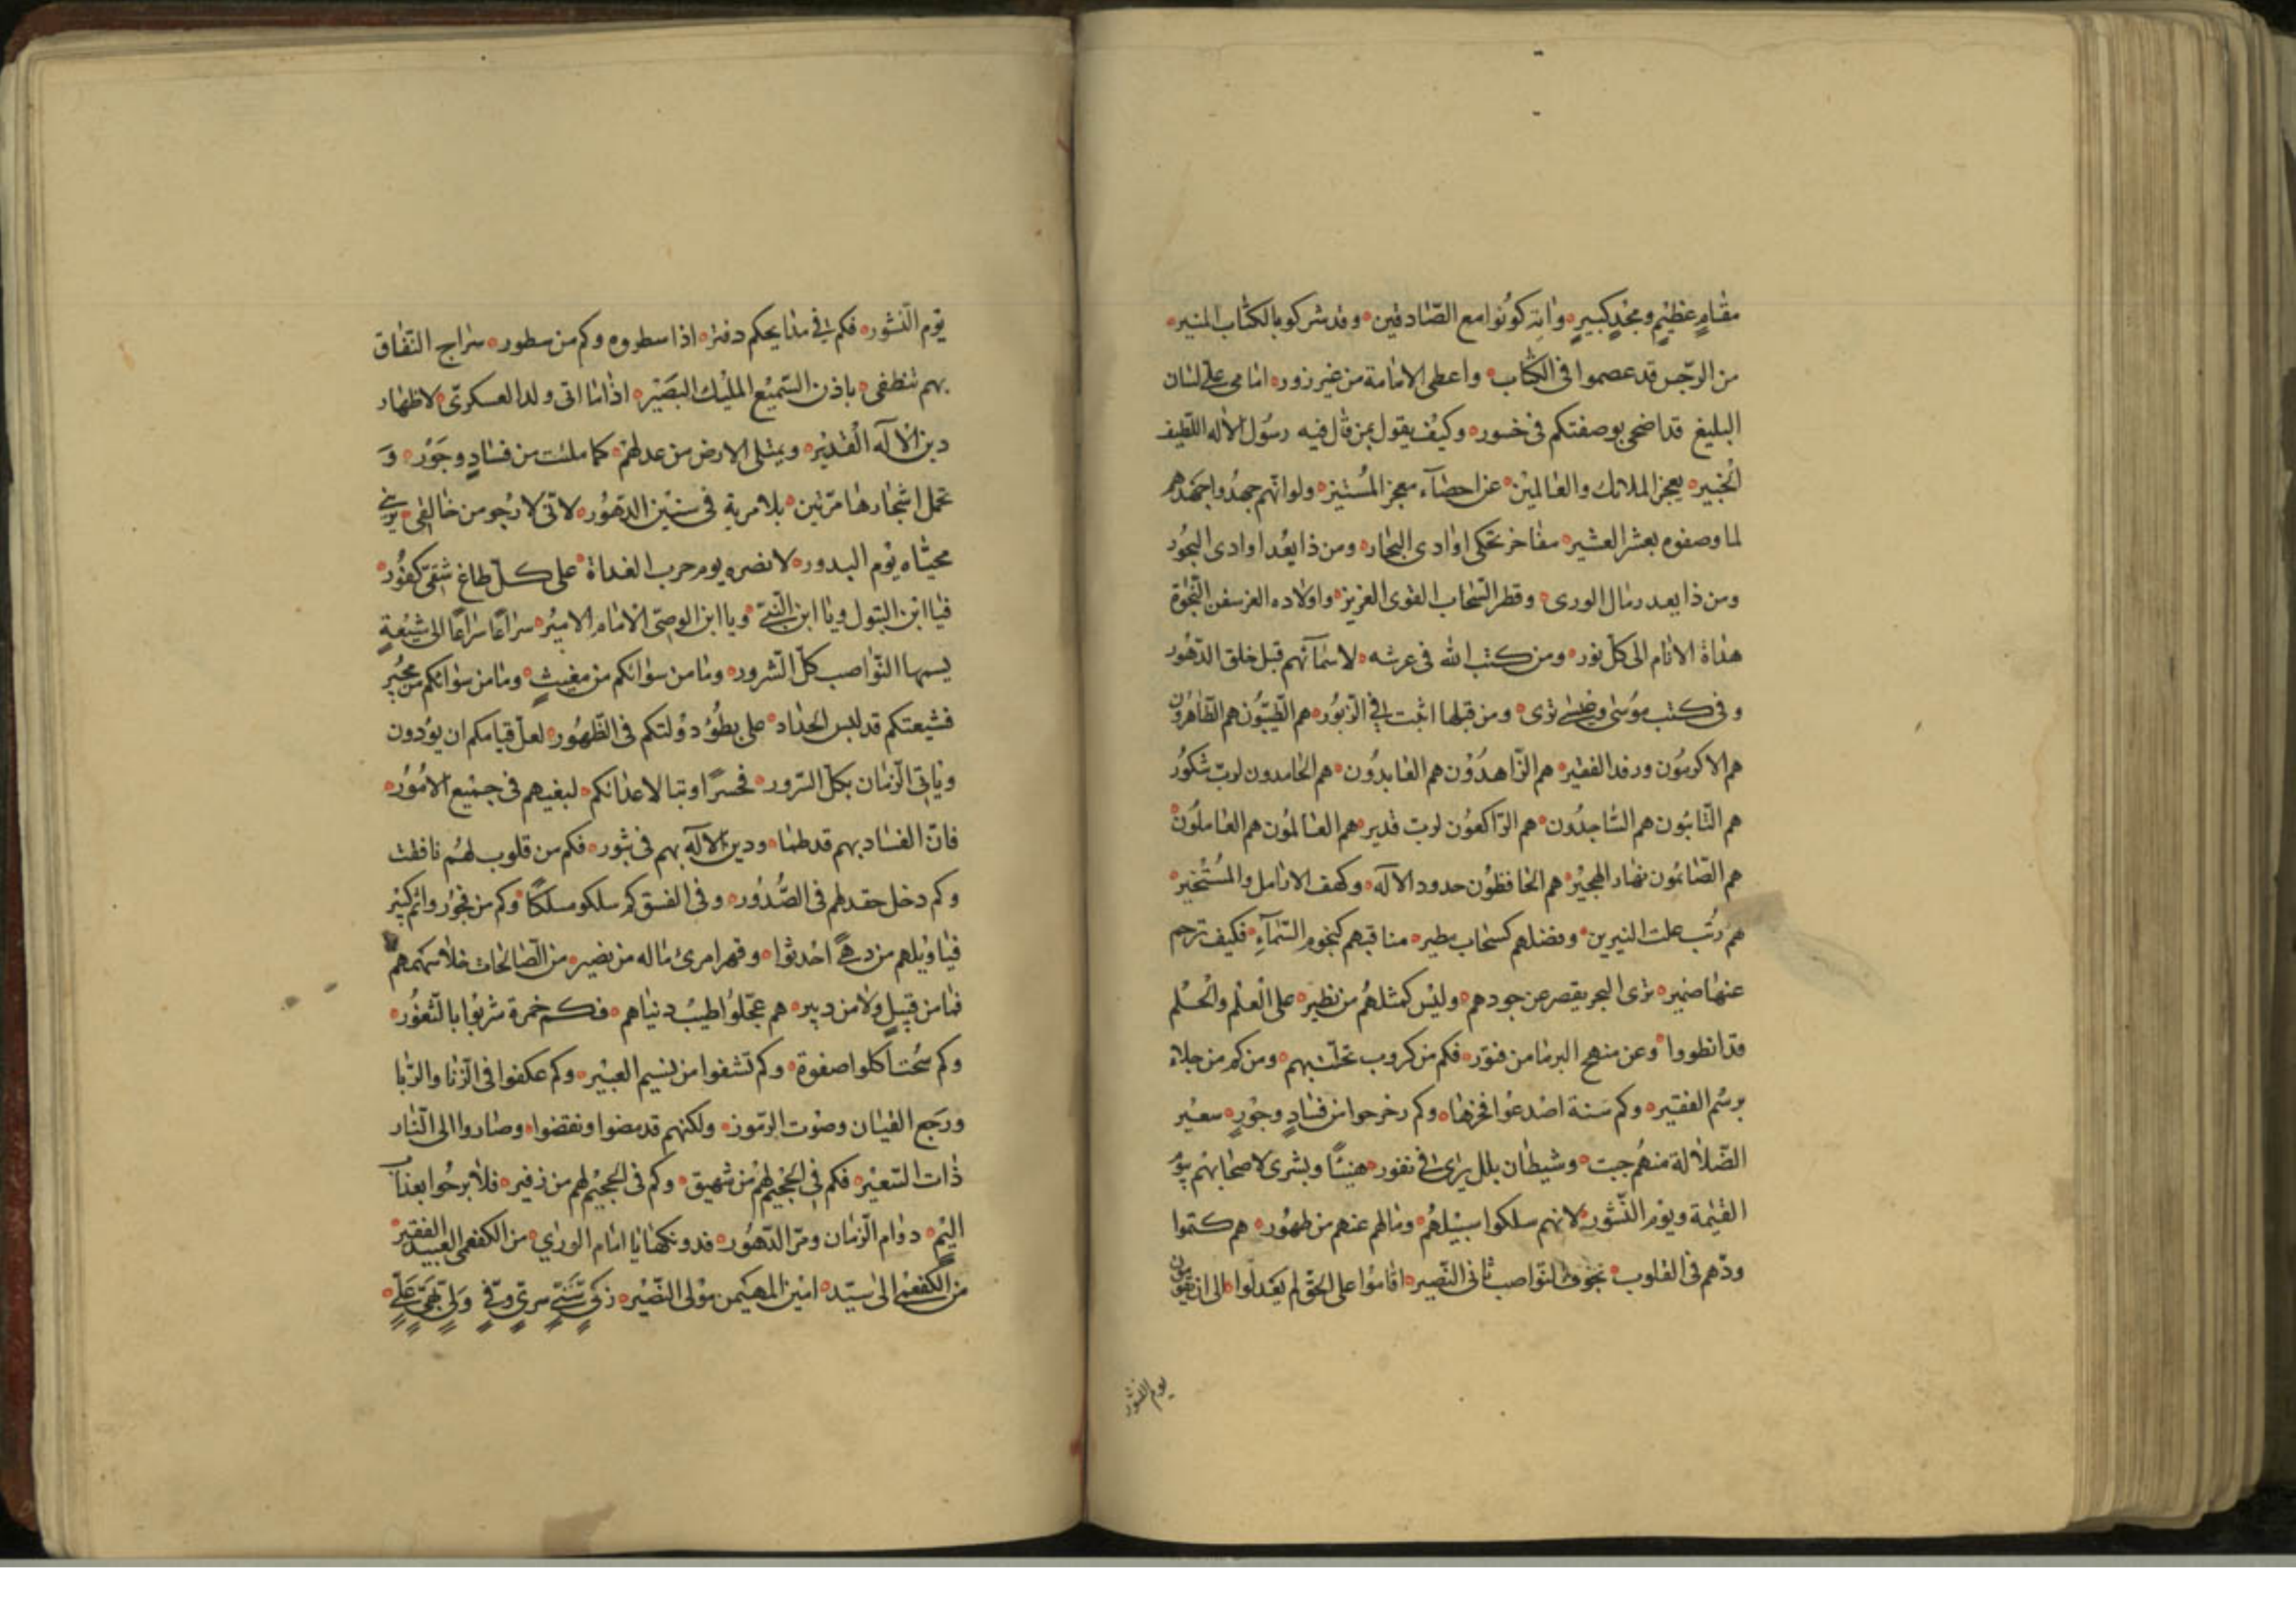 مقام عظيم ومجد كبير وآية كونوا مع الصادقين وقد شركوا بالكتاب المنير
من الرجس قد عصموا في الكتاب واعطى الامامة من غير زور امامي علي لسان
البليغ قد اضحى بوصفتكم في خسور وكيف يقول بمن قال فيه رسول الاله اللطيف
الخبير يعجز الملائك والعالمين عن احصاء معجز المستنير ولو انهم جهدوا جهدهم
لما وصفوه بعشر العشير مفاخر تحكي اوادي البحار ومن ذا يعد اوادي البحور
ومن ذا يعد رمال الورى وقطر السحاب القوي العزيز واولاده الغر سفن النجوة
هداة الانام الى كل نور ومن كتب الله في عرشه لاسمائهم قبل خلق الدهور
وفي كتب موسى وعيسى ترى ومن قبلها اثبت في الزبور هم الطيبون هم الطاهرون
هم الاكرمون ورفد الفقير هم الزاهدون هم العابدون هم الحامدون لرب شكور
هم التائبون هم الساجدون هم الراكعون لرب قدير هم العالمون هم العاملون
هم الصائمون نهار الهجير هم الحافظون حدود الاله وكهف الارامل والمستجير
هم رتب علت النيرين وفضلهم كسحاب مطير مناقبهم كنجوم السماء فكيف ترجم
عنها ضمير ترى البحر يقصر عن جودهم وليس كمثلهم من نظير على العلم والحلم
قد انطووا وعن منهج البر ما من فتور فكم من كروب تجلت بهم ومن كم من جلاء
برسم الفقير وكم سنة اصدعوا فخرها وكم زحزحوا من فساد وجور سعير
الضلالة منهم خبت وشيطان بلل يرى في نفور هنيئا وبشرى لاصحابهم يوم
القيمة ويوم النشور لانهم سلكوا سبيلهم وما لهم عنهم من ظهور هم كتموا
ودهم في القلوب بخوف النواصب ثاني النصير اقاموا على الحق لم يعدلوا الى ان يقومون
يوم النشور
يوم النشور فكم لي في مدايحكم دفتر اذا سطروه وكم من سطور سراج النفاق
بهم تنطفي باذن السميع المليك البصير اذا ما اتى ولد العسكري لاظهار
دين الاله القدير ويمتلي الارض من عدلهم كما ملئت من فساد وجور و
تحمل اشجارها مرتين بلا مرية في سنين الدهور لاني لارجو من خالقي يريني
محياه يوم البدور لانصره يوم حرب العداة على كل طاغ شقي كفور
فيا ابن البتول ويا ابن النبي ويا ابن الوصي الامام الامير سراعا سراعا الى شيعة
يسمها النواصب كل الشرور وما من سوائكم من مغيث وما من سوائكم من مجير
فشيعتكم قد لبس الحداد على بطؤ دولتكم في الظهور لعل قيامكم ان يؤدون
وياتي الزمان بكل السرور فخسرا وتبا لاعدائكم لبغيهم في جميع الامور
فان الفساد بهم قد طما ودين الاله بهم في ثبور فكم من قلوب لهم نافقت
وكم دخل حقدهم في الصدور وفي الفسق كم سلكو مسلكا وكم من فجور واثم كبير
فيا ويلهم من دهي احدثوا وقهر امرئ ما له من نصير من الصالحات خلا سهمهم
فما من قبيل ولا من دبير هم عجلوا طيب دنياهم فكم خمرة شربوا بالثغور
وكم سحتا كلوا صفوة وكم تشفوا من نسيم العبير وكم عكفوا في الزنا والربا
ورجع القيان وصوت الزمور ولكنهم قد مضوا ونقضوا وصاروا الى النار
ذات السعير فكم في الجحيم لهم من شهيق وكم في الجحيم لهم من زفير فلا برحوا بعذاب
اليم دوام الزمان ومر الدهور فدونكها يا امام الورى من الكفعمي العبيد الفقير
من الكفعمي الى سيد امين المهيمن مولى النصير زكي سني سري وفي ولي بهي علي